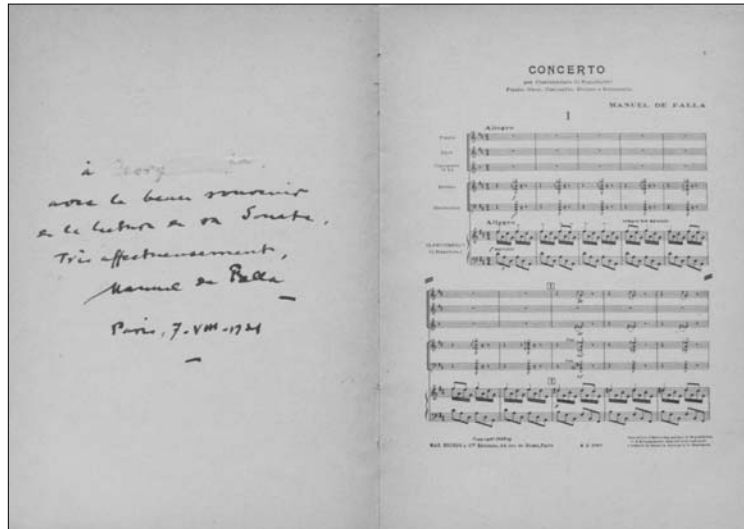 à Georg
avec le beau souvenir
de la lecture de sa Sonate.
Très affectueusement,
Manuel de Falla
Paris, 7-VIII-1931
CONCERTO
per Clavicembalo (o Pianoforte)
Flauto, Oboe, Clarinetto, Violino e Violoncello
MANUEL DE FALLA
I
Allegro
Flauto
Oboe
Clarinetto
Violino
Violoncello
Allegro
CLAVICEMBALO
(o Pianoforte)
1
1
MAX ESCHIG & Cie Editeurs, 48 rue de Rome, Paris